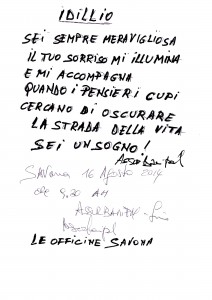 IDILLIO
SEI SEMPRE MERAVIGLIOSA
IL TUO SORRISO MI ILLUMINA
E MI ACCOMPAGNA
QUANDO I PENSIERI CUPI
CERCANO DI OSCURARE
LA STRADA DELLA VITA
SEI UN SOGNO!
SAVONA 16 AGOSTO 2014
ORE 9.20 AM
LE OFFICINE SAVONA